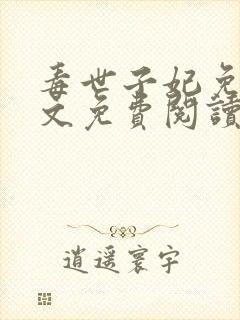 毒世子妃免
文免費閱讀
逍遥寰宇